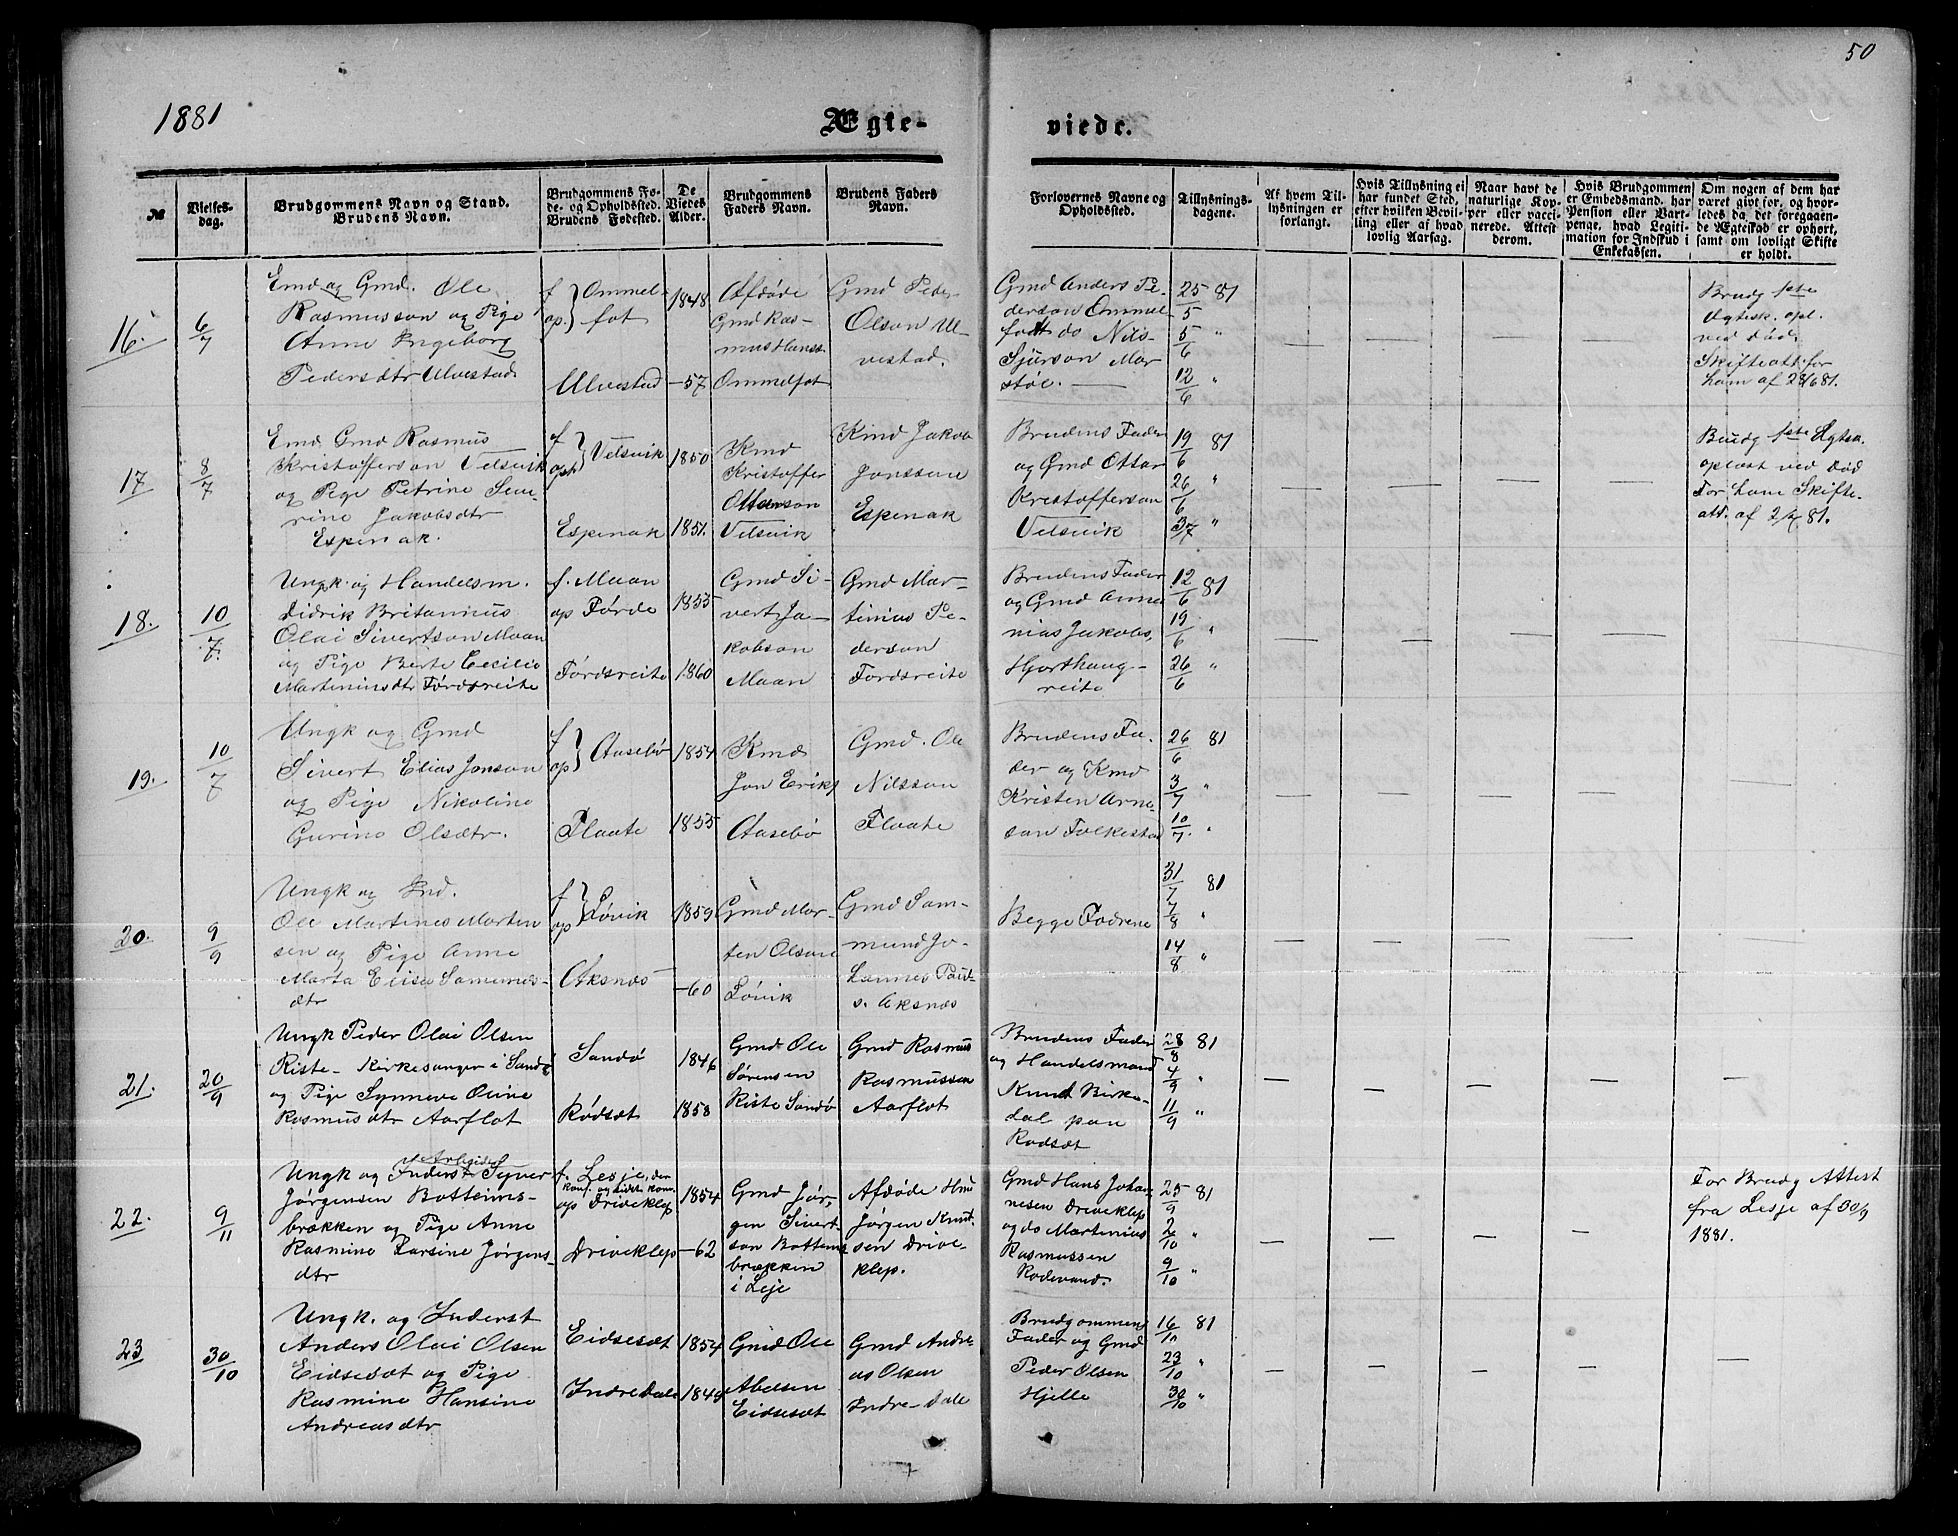 50
1881
Ægte-
viede.
№
Vielses-
dag.
Brudgommens Navn og Stand.
Brudens Navn.
Brudgommens Fø-
de- og Opholdssted.
Brudens Fødested.
De
Viedes
Alder.
Brudgommens
Faders Navn.
Brudens Faders
Navn.
Forlovernes Navne og
Opholdssted.
Tillysnings-
dagene.
Af hvem Til-
lysningen er
forlangt.
Hvis Tillysning ei
har fundet Sted,
efter hvilken Bevil-
ling eller af hvad
lovlig Aarsag.
Naar havt de
naturlige Kop-
per eller vacci-
nerede. Attest
derom.
Hvis Brudgommen
er Embedsmand, har
Pension eller Vart-
penge, hvad Legiti-
mation for Indskud i
Enkekassen.
Om nogen af dem har
været givt før, og hvor-
ledes da det foregaaen-
de Ægteskab er ophørt,
samt om lovligt Skifte
er holdt.
16.
6/7
Emd og Gmd. Ole
Rasmusson og Pige
Anne Ingeborg
Pedersdtr Ulvestad
f
op. } Ommel-
fot
Ulvestad
1848
-57
Afdøde
Gmd Ras-
mus Hanss.
Ommelfot
Gmd Peder
Olson Ul-
vestad.
Gmd Anders Pe-
derson Ommel
fot do Nils
Sjurson Mar
støl.
25/5 81
5/6 "
12/6 "
Brudg 1ste
Ægtesk. opl.
ved Død.
Skifteatt. for
ham af 28/6 81.
17
8/7
Emd Gmd Rasmus
Kristofferson Velsvik
og Pige Petrine Seve-
rine Jakobsdtr
Espenak.
f
oph } Velsvik
Espenak
1850
1851.
Kmd
Kristoffer
Otterson
Velsvik
Kmd Jakob
Jonssen
Espenak
Brudens Fader
og Gmd Ottar
Kristofferson
Velsvik
19/6 81
26/6 "
3/7 "
Brudg 1ste Ægtesk.
opløst ved Død
For ham Skifte-
att. af 2/7 81.
18.
10/7.
Ungk. og Handelsm.
Didrik Britanius
Olai Sivertson Maan
og Pige Berte Cecilie
Martiniusdtr Førdsreite
f. Maan
op Førde
Førdsreite
1855
1860
Gmd Si-
vert Ja-
kobson
Maan
Gmd Mar-
tinius Pe-
derson
Førdsreite
Brudens Fader
og Gmd Anne
nias Jakobs.
Hjorthaug-
reite
12/6 81
19/6 "
26/6 "
19.
10/7
Ungk og Gmd
Sivert Elias Jonson
og Pige Nikoline
Gurine Olsdtr.
f
op } Aasebø
Flaate
1854
1855
Kmd
Jon Eriks
Aasebø
Gmd. Ole
Nilsson
Flaate
Brudens Fa-
der og Kmd
Kristen Arne-
son Folkestad
26/6 81
3/7 "
10/7. "
20.
9/9
Ungk og Ind.
Ole Martines Morten
sen og Pige Anne
Marta Elise Samunds-
dtr
f
op } Løvik
Aksnæs
1859
-60
Gmd Mor-
ten Olson
Løvik
Gmd Sam-
mund Jo-
hannes Paul-
s. Aksnæs
Begge Fædrene
31/7 81
7/8 "
14/8 "
21.
20/9
Ungk Peder Olai Olsen
Riste- Kirkesanger i Sandø
og Pige Synneve Oline
Rasmusdtr Aarflot
Sandø
Rødsæt
1846
1858
Gmd Ole
Sørensen
Riste Sandø
Gmd Rasmus
Rasmussen
Aarflot
Brudens Fader
og Handelsmand
Knud Birke-
dal paa
Rødsæt
28/8 81
4/9 "
11/9 "
22.
9/11
Arbeider
Ungk og Inderst Syver
Jørgensen Bottems-
brækken og Pige Anne
Rasmine Larsine Jørgens-
dtr
f. Lesje, der
konf. og sidst kom.
op Driveklep
Driveklep
1854
-62
Gmd Jør-
gen Sivert-
son Bottems
brækken
i Lesje
Afdøde Hmd
Jørgen Knut-
sen Drive-
klep.
Gmd Hans Johan
nesen Driveklep
og do Martinius
Rasmussen
Rodevand.
25/9 81
2/10 "
9/10 "
For Brudg Attest
fra Lesje af 30/9
1881.
23
30/10
Ungk. og Inderst
Anders Olai Olsen
Eidsesæt og Pige
Rasmine Hansine
Andreasdtr
Eidsesæt
Indredale
1854
1849
Gmd Ole
Abelsen
Eidsesæt
Gmd Andre-
as Olsen
Indre-Dale
Brudgommens
Fader og Gmd
Peder Olsen
Hjelle
16/10 81
23/10 "
30/10 "